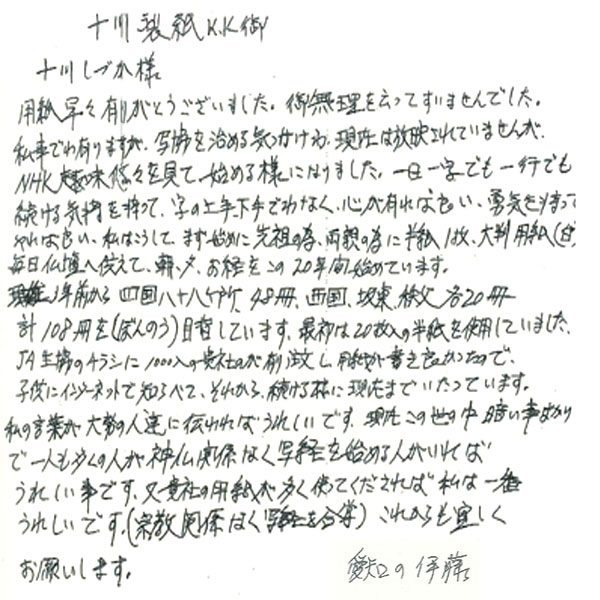 十川製紙K.K御
十川しづか様
用紙早々有りがとうございました。御無理を云ってすいませんでした。
私事でわ有りますが、写経を始める気っかけわ、現在は放映されていませんが、
NHK趣味悠々を見て、始める様になりました。一日一字でも一行でも
続ける気持を持って、字の上手、下手でわなく、心が有れば良い、勇気を持って
やれば良い、私はこうして、まず始めに先祖の為、両親の為に半紙1枚、大判用紙
毎日仏壇へ供えて、朝、夕、お経をこの20年間始めています。
3年前から四国八十八ヶ所、48冊、西国、坂東、秩父各20冊
計108冊を(ぼんのう)目指しています、最初は20枚入の半紙を使用していました、
JA主婦のチラシに1000入の貴社のが有、注文し、用紙が書き良かったので、
子供にインターネットで知らべて、それから、続ける様に現在までいたっています。
私の言葉が大勢の人達に伝われればうれしいです、現在この世の中暗い事ばかり
で一人も多くの人が神仏関係なく写経を始める人がいれば
うれしい事です、又貴社の用紙が多く使てくだされば私は一番
うれしいです、(宗教関係なく写経を) これからも宜しく
お願いします。
愛知の伊藤